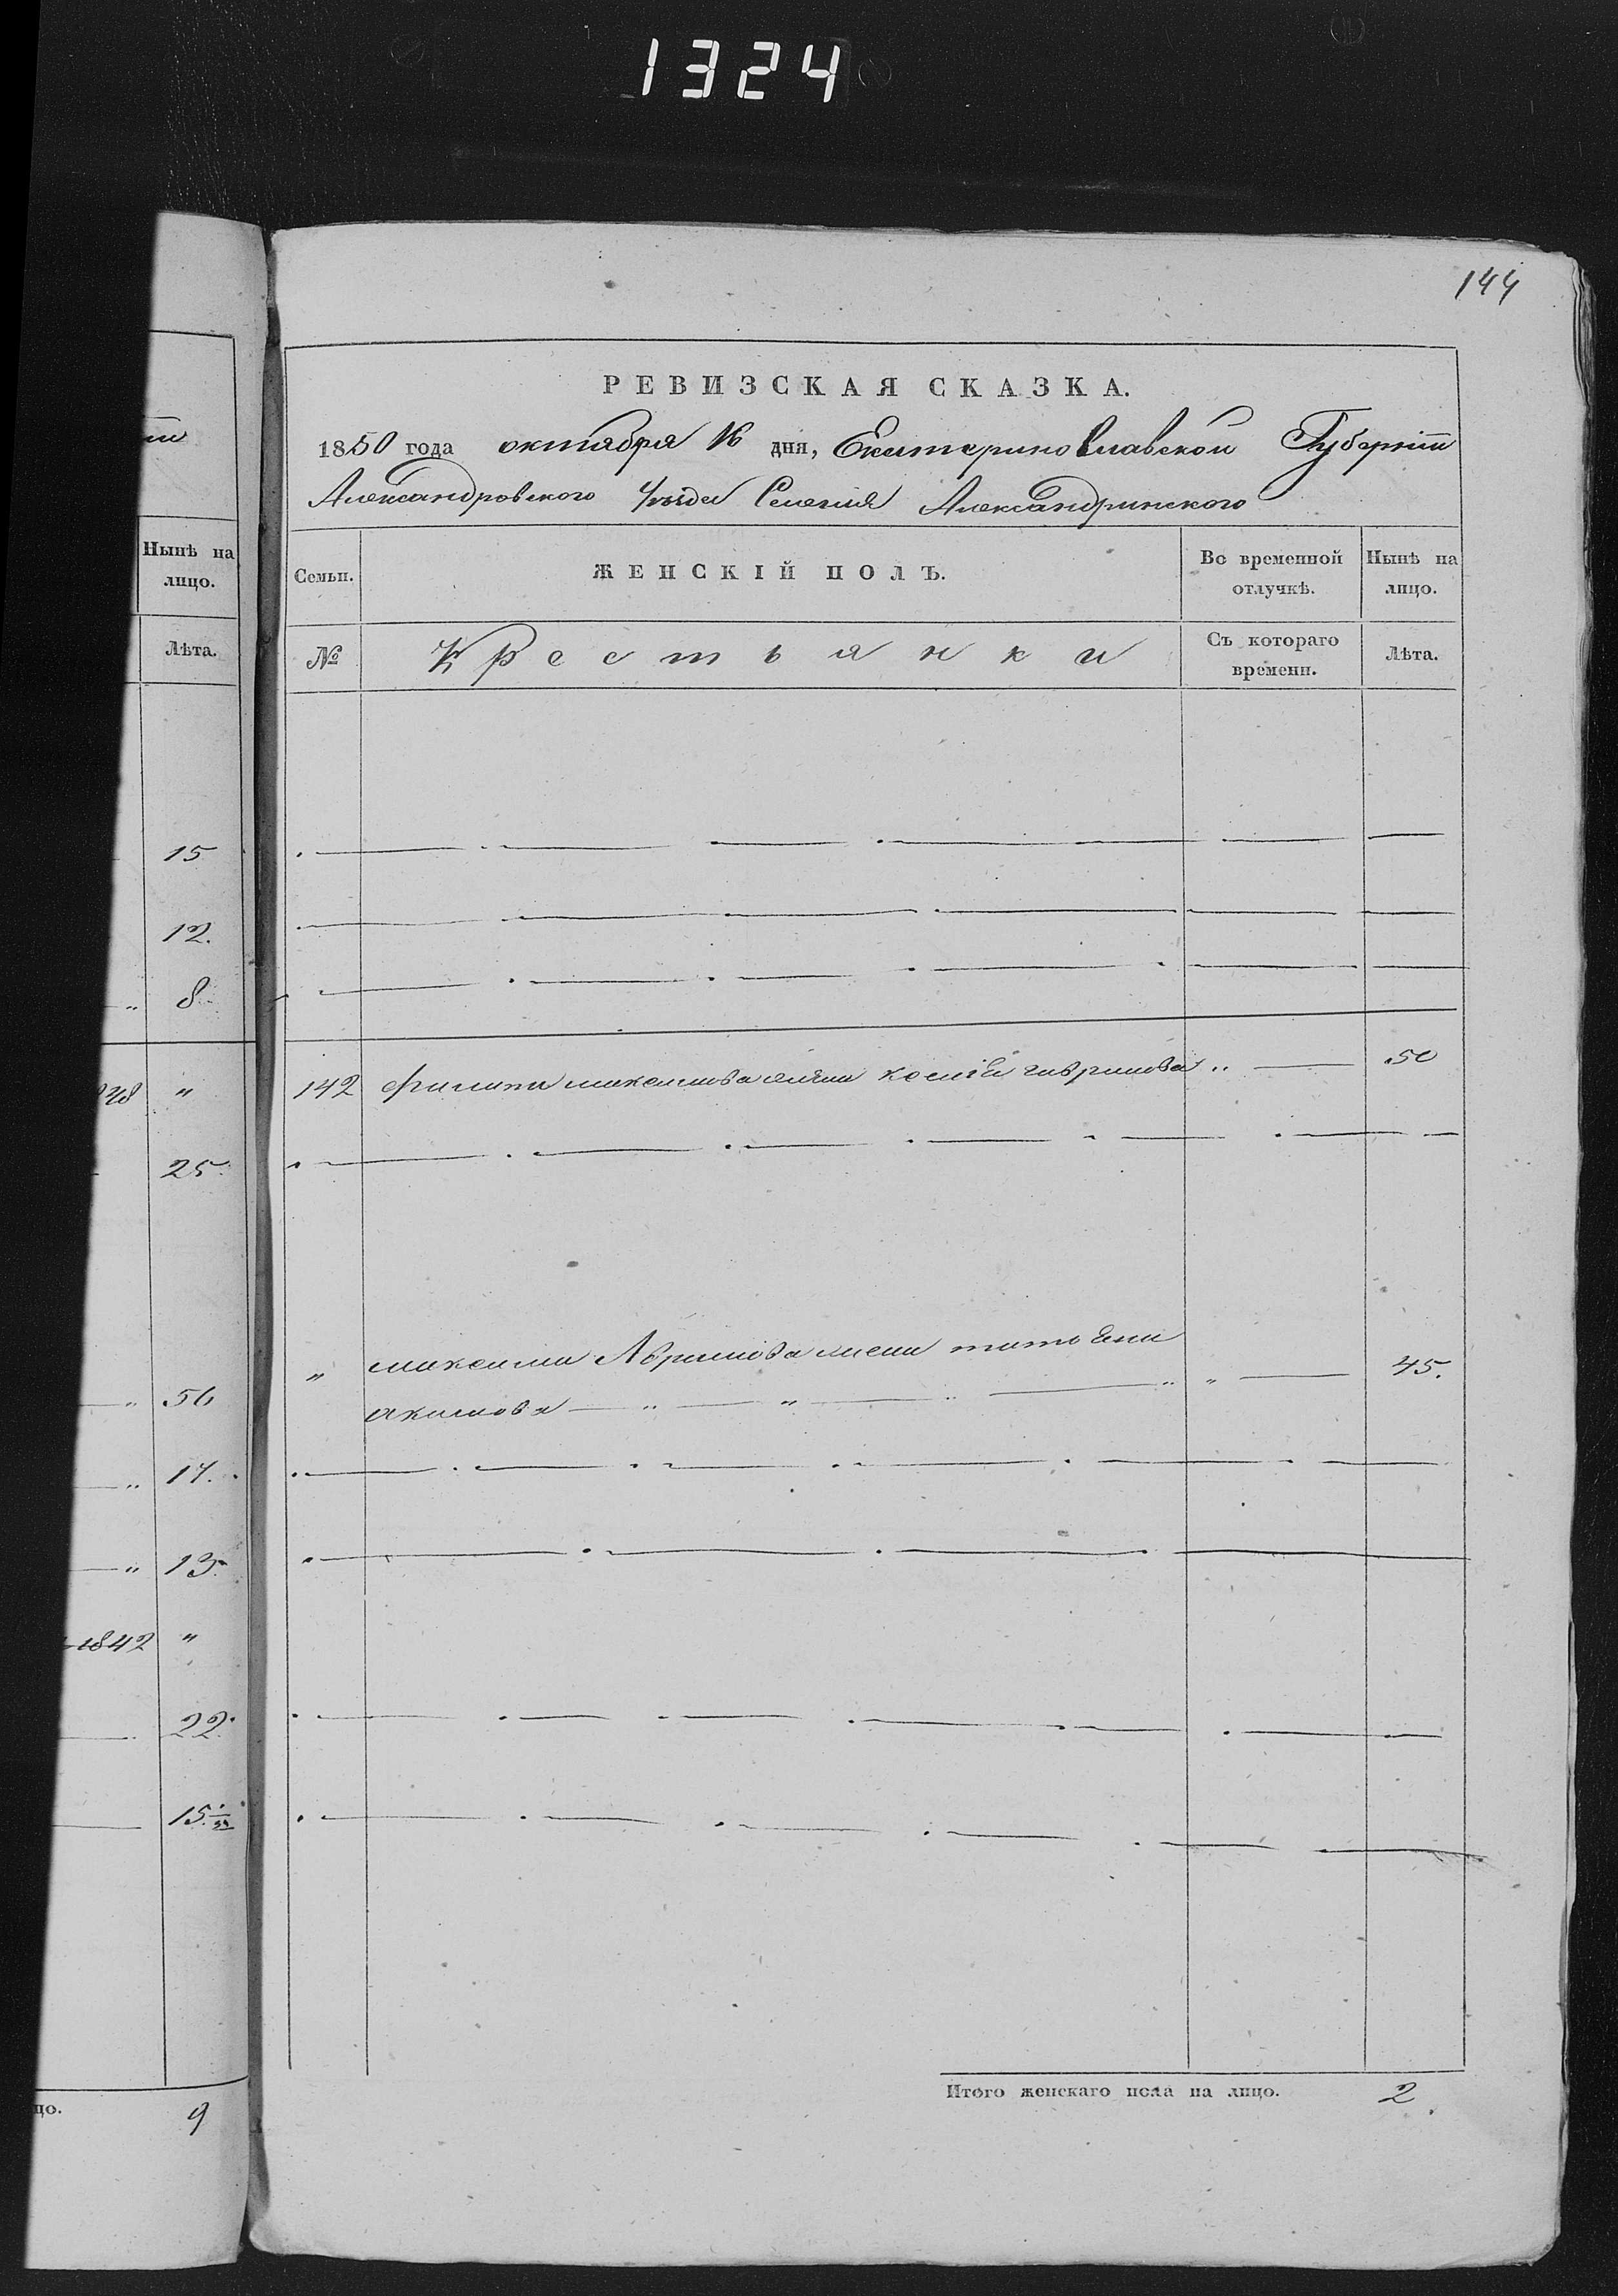 1324
144
РЕВИЗСКАЯ СКАЗКА.
1850 года октября 16 дня, Екатеринославской Губерніи
Александровского Уезда Селенія Александринского
Нынѣ на
лицо.
Лѣта.
15
12.
8
"
25
56
17.
13.
1842 "
22.
15.
цо. 9
Семьи. ЖЕНСКІЙ ПОЛЪ. Во временной отлучкѣ. Нынѣ на лицо.
№ Крестьянки Съ котораго времени. Лѣта.
142 Филипа максимова жена гаврилова " 50
" максима Абрамова жена татьяна
акимова " " " " " 45.
Итого женскаго пола на лицо. 2.